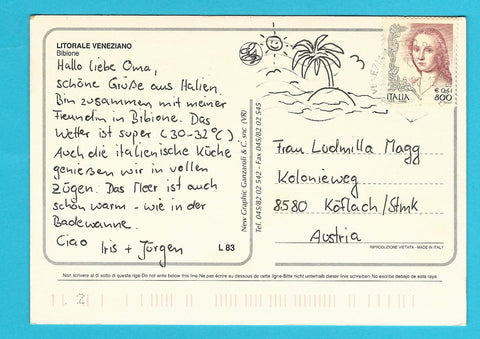 LITORALE VENEZIANO
Bibione
Hallo liebe Oma,
schöne Grüße aus Italien.
Bin zusammen mit meiner
Freundin in Bibione. Das
Wetter ist super (30-32°C).
Auch die italienische Küche
genießen wir in vollen
Zügen. Das Meer ist auch
schön warm - wie in der
Badewanne.
Ciao Iris + Jürgen
L 83
New Graphic Ganzaroli & C. snc (VR)
Tel. 045/82 02 542 - Fax 045/82 02 545
VENEZ
€ 0,41
ITALIA 800
Frau Ludmilla Magg
Kolonieweg
8580 Köflach/Stmk.
Austria
RIPRODUZIONE VIETATA - MADE IN ITALY
Non scrivere al di sotto di questa riga-Do not write below this line-Ne pas écrire au dessous de cette ligne-Bitte nicht unterhalb dieser linie schreiben-No escribe debajo de esta raya
2